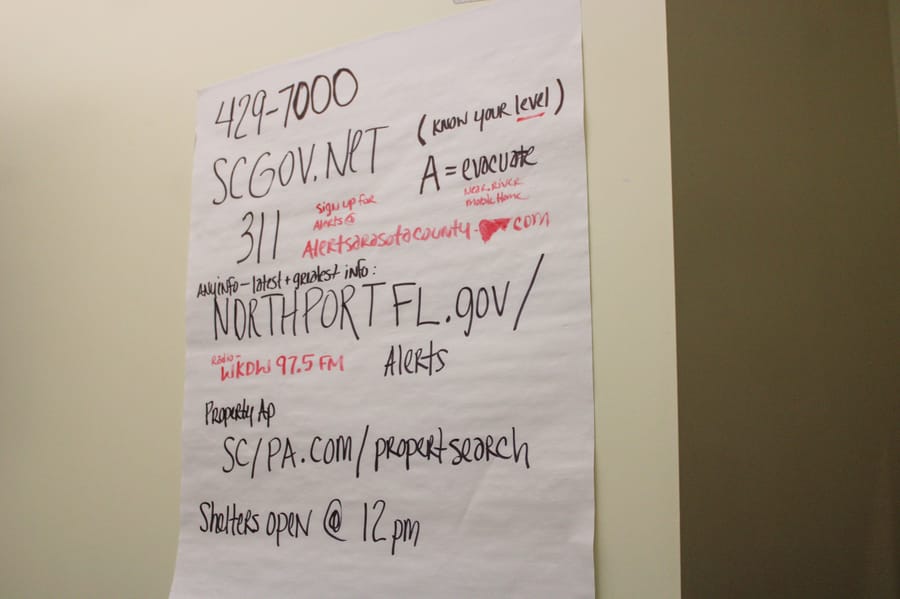 429-7000
(KNOW YOUR level)
SCGOV.NET
A = evacuate
Near River
Mobile Home
311
sign up for
Alerts @
Alertsarasotacounty.com
ANY INFO - latest + greatest info:
NORTHPORTFL.gov/
Alerts
Radio-
WKDW 97.5 FM
Property Ap
SC/PA.COM/propertsearch
Shelters open @ 12 pm